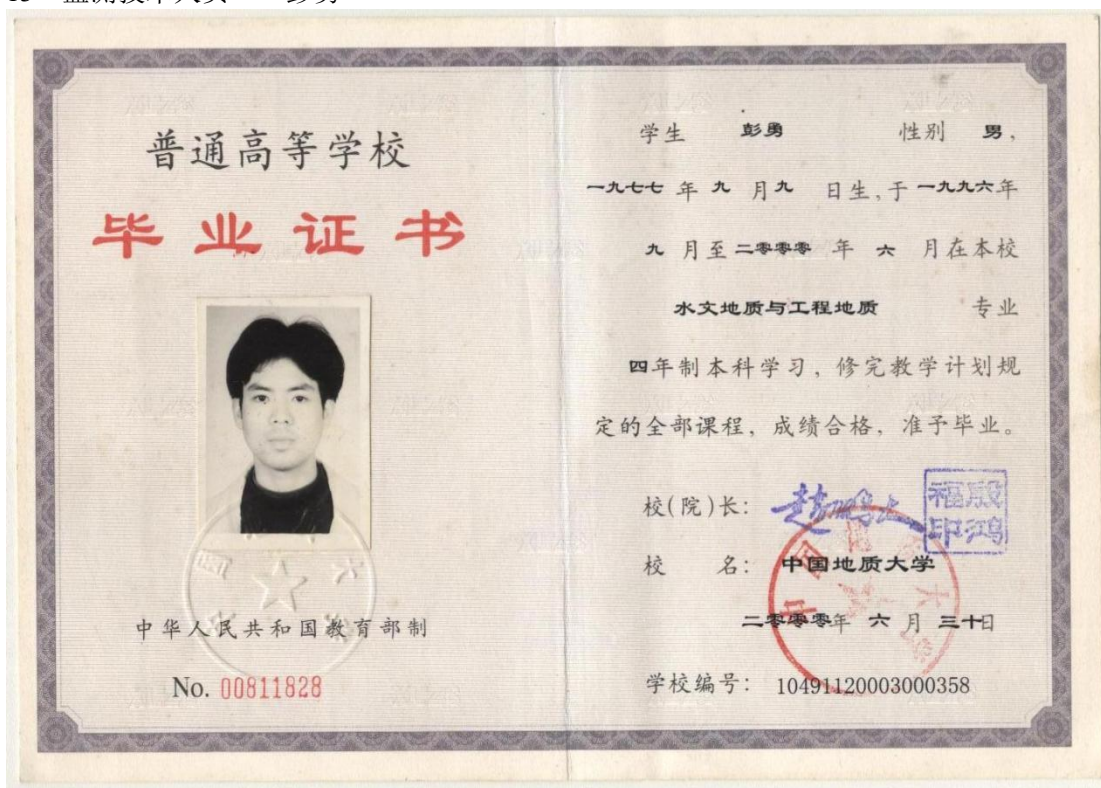 普通高等学校
毕业证书
中华人民共和国教育部制
No. 00811828
学生 彭勇 性别 男,
一九七七 年 九 月 九 日生,于 一九九六年
九 月至 二零零零 年 六 月在本校
水文地质与工程地质 专业
四年制本科学习, 修完教学计划规
定的全部课程, 成绩合格, 准予毕业。
校(院)长: 赵鹏大 殷鸿福印
校 名: 中国地质大学
二零零零年 六 月 三十日
学校编号: 10491120003000358